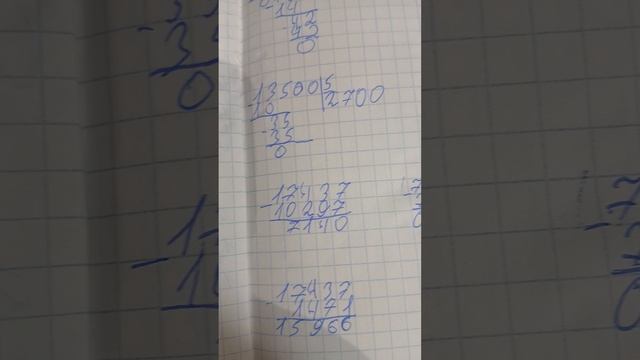 -14
-42
42
0
13500|5
10 2700
-35
35
0
-17437
10297
7140
-17437
1471
15966